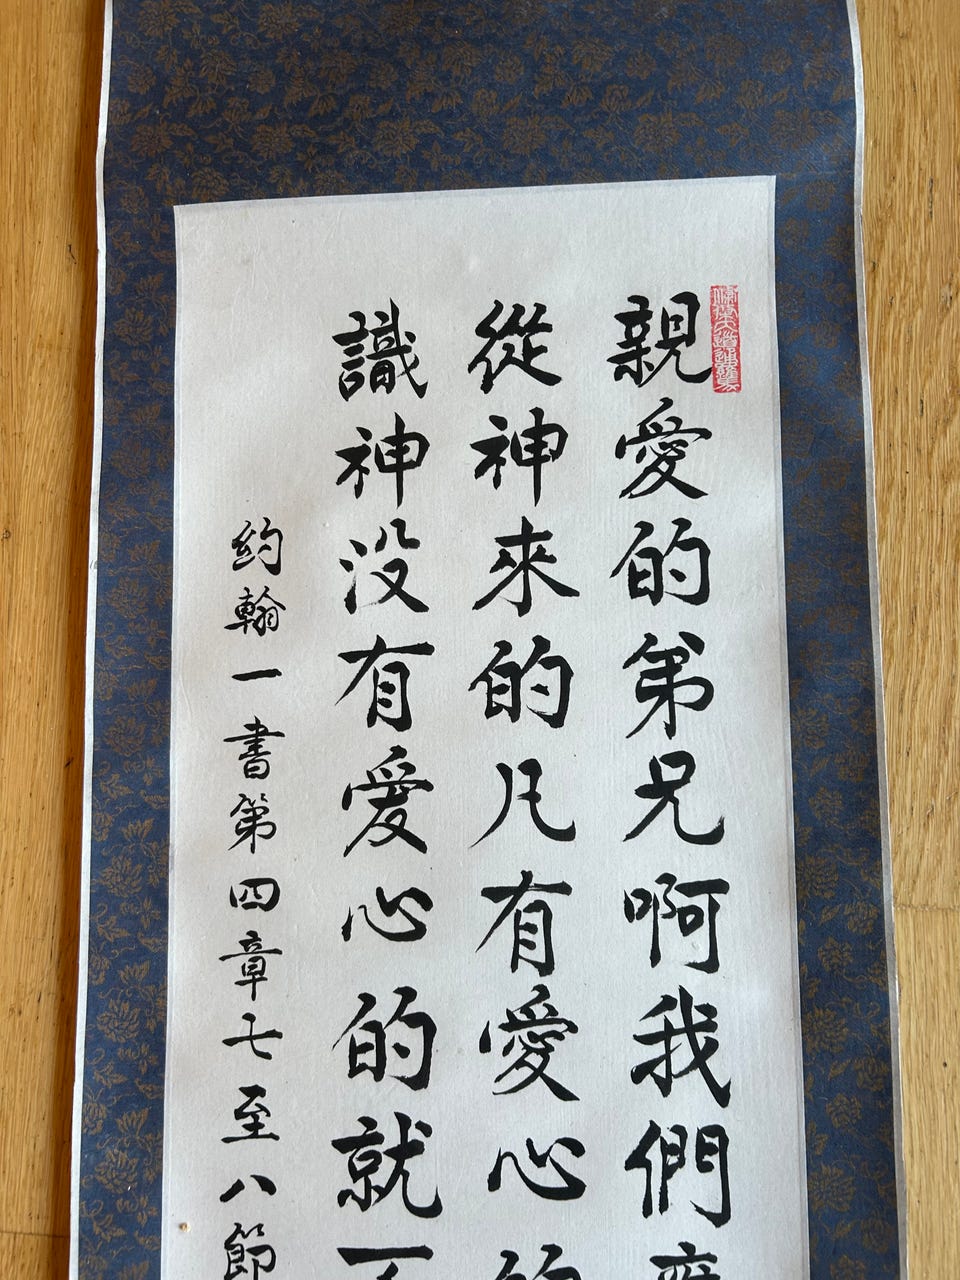 親愛的弟兄啊我們應
從神來的凡有愛心的
識神没有愛心的就不
約翰一書第四章七至八節